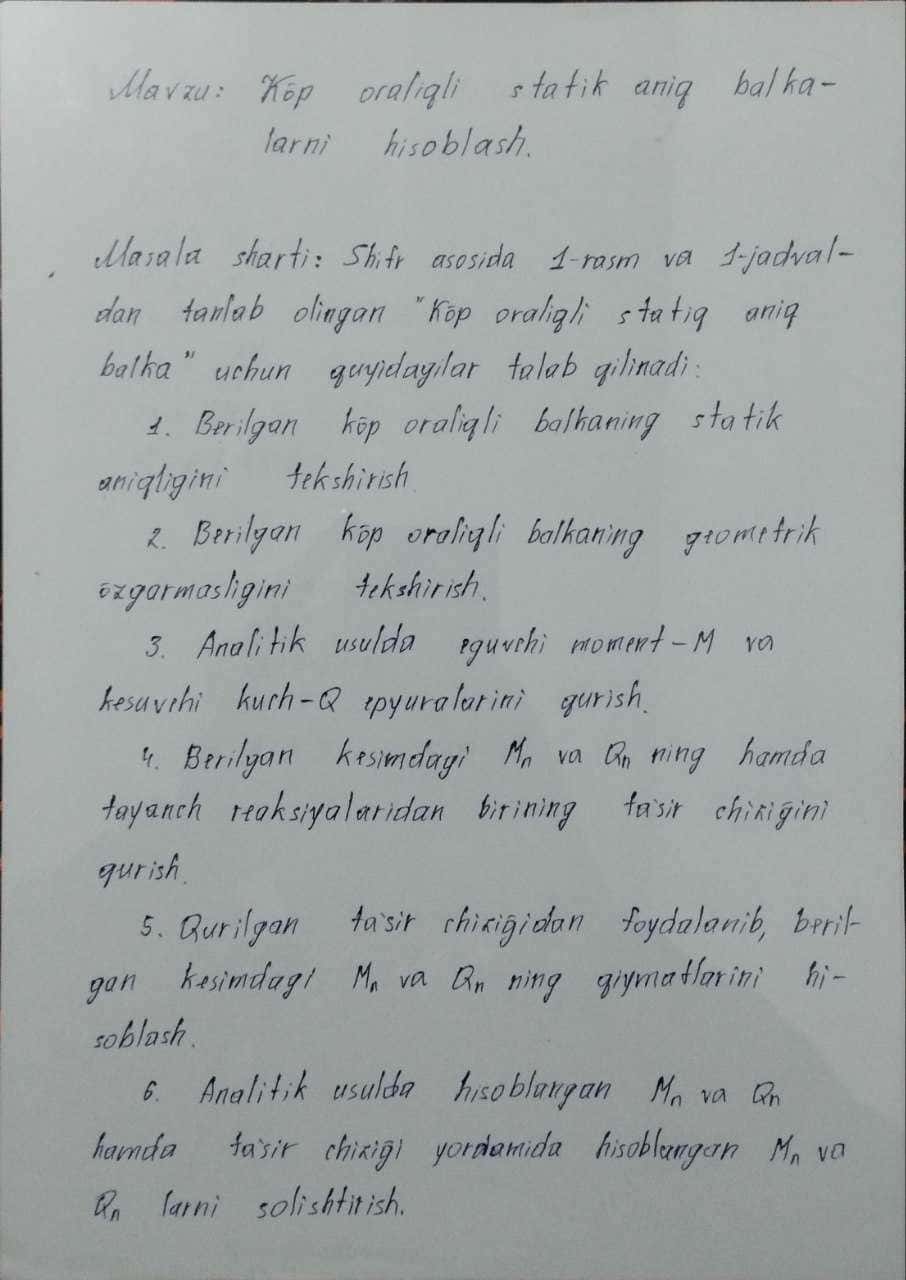 Mavzu: Kōp oraliqli statik aniq balka-
larni hisoblash.
Masala sharti: Shifr asosida 1-rasm va 1-jadval-
dan tanlab olingan "Kōp oraliqli statiq aniq
balka" uchun quyidagilar talab qilinadi:
1. Berilgan kōp oraliqli balkaning statik
aniqligini tekshirish
2. Berilgan kōp oraliqli balkaning geometrik
ōzgarmasligini tekshirish.
3. Analitik usulda eguvchi moment-M va
kesuvchi kuch-Q epyuralarini qurish.
4. Berilgan kesimdagi Mn va Qn ning hamda
tayanch reaksiyalaridan birining ta'sir chiziḡini
qurish.
5. Qurilgan ta'sir chiziḡidan foydalanib, beril-
gan kesimdagi Mn va Qn ning qiymatlarini hi-
soblash.
6. Analitik usulda hisoblangan Mn va Qn
hamda ta'sir chiziḡi yordamida hisoblangan Mn va
Qn larni solishtirish.